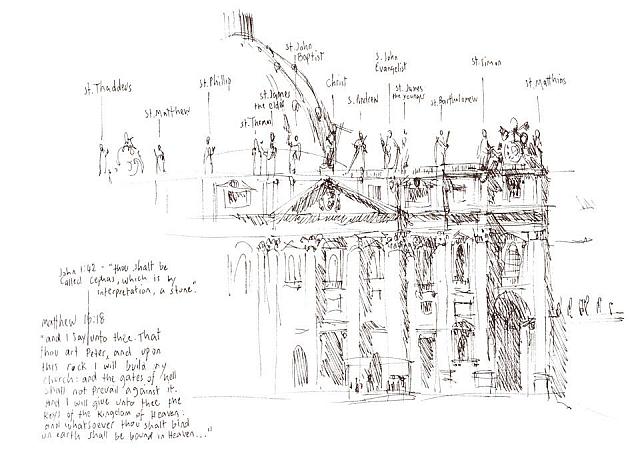 St. Thaddeus
St. Matthew
St. Phillip
St. Thomas
St. James
the elder
St. John
Baptist
Christ
S. Andrew
S. John
Evangelist
St. James
the younger
St. Bartholomew
St. Simon
St. Matthias
John 1:42 - "thou shalt be
called Cephas, which is by
interpretation, a stone".
Matthew 16:18
"and I say unto thee. That
thou art Peter, and upon
this rock I will build my
church: and the gates of hell
shall not prevail against it.
and I will give unto thee the
keys of the kingdom of Heaven:
and whatsoever thou shalt bind
on earth shall be bound in Heaven..."